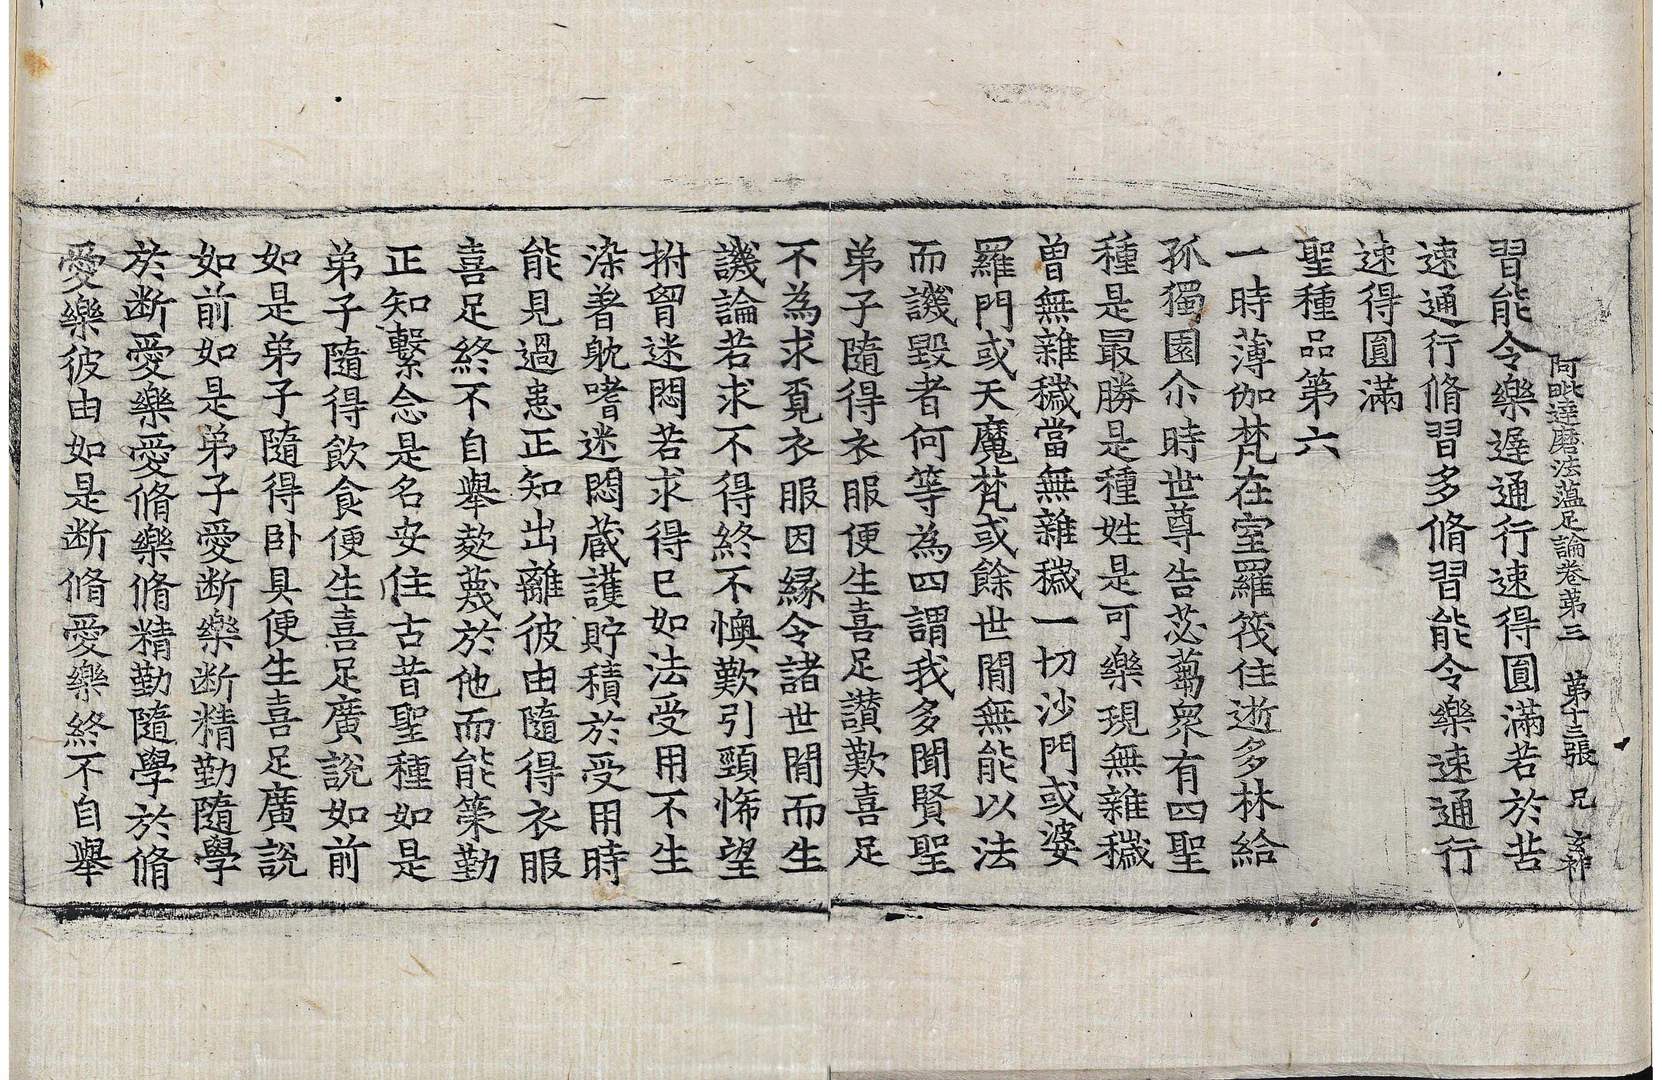 阿毗達磨法蘊足論卷第三　第十三張　兄　玄冲
習能令樂遲通行速得圓滿若於苦
速通行脩習多脩習能令樂速通行
速得圓滿
聖種品第六
一時薄伽梵在室羅筏住逝多林給
孤獨園尒時世尊告苾蒭衆有四聖
種是最勝是種姓是可樂現無雜穢
曾無雜穢當無雜穢一切沙門或婆
羅門或天魔梵或餘世閒無能以法
而譏毀者何等為四謂我多聞賢聖
弟子隨得衣服便生喜足讚歎喜足
不為求覓衣服因緣令諸世閒而生
譏論若求不得終不懊歎引頸悕望
拊胷迷悶若求得已如法受用不生
染著躭嗜迷悶藏護貯積於受用時
能見過患正知出離彼由隨得衣服
喜足終不自舉陵蔑於他而能策勤
正知繫念是名安住古昔聖種如是
弟子隨得飲食便生喜足廣說如前
如是弟子隨得卧具便生喜足廣說
如前如是弟子愛断樂断精勤隨學
於断愛樂愛脩樂脩精勤隨學於脩
愛樂彼由如是断脩愛樂終不自舉